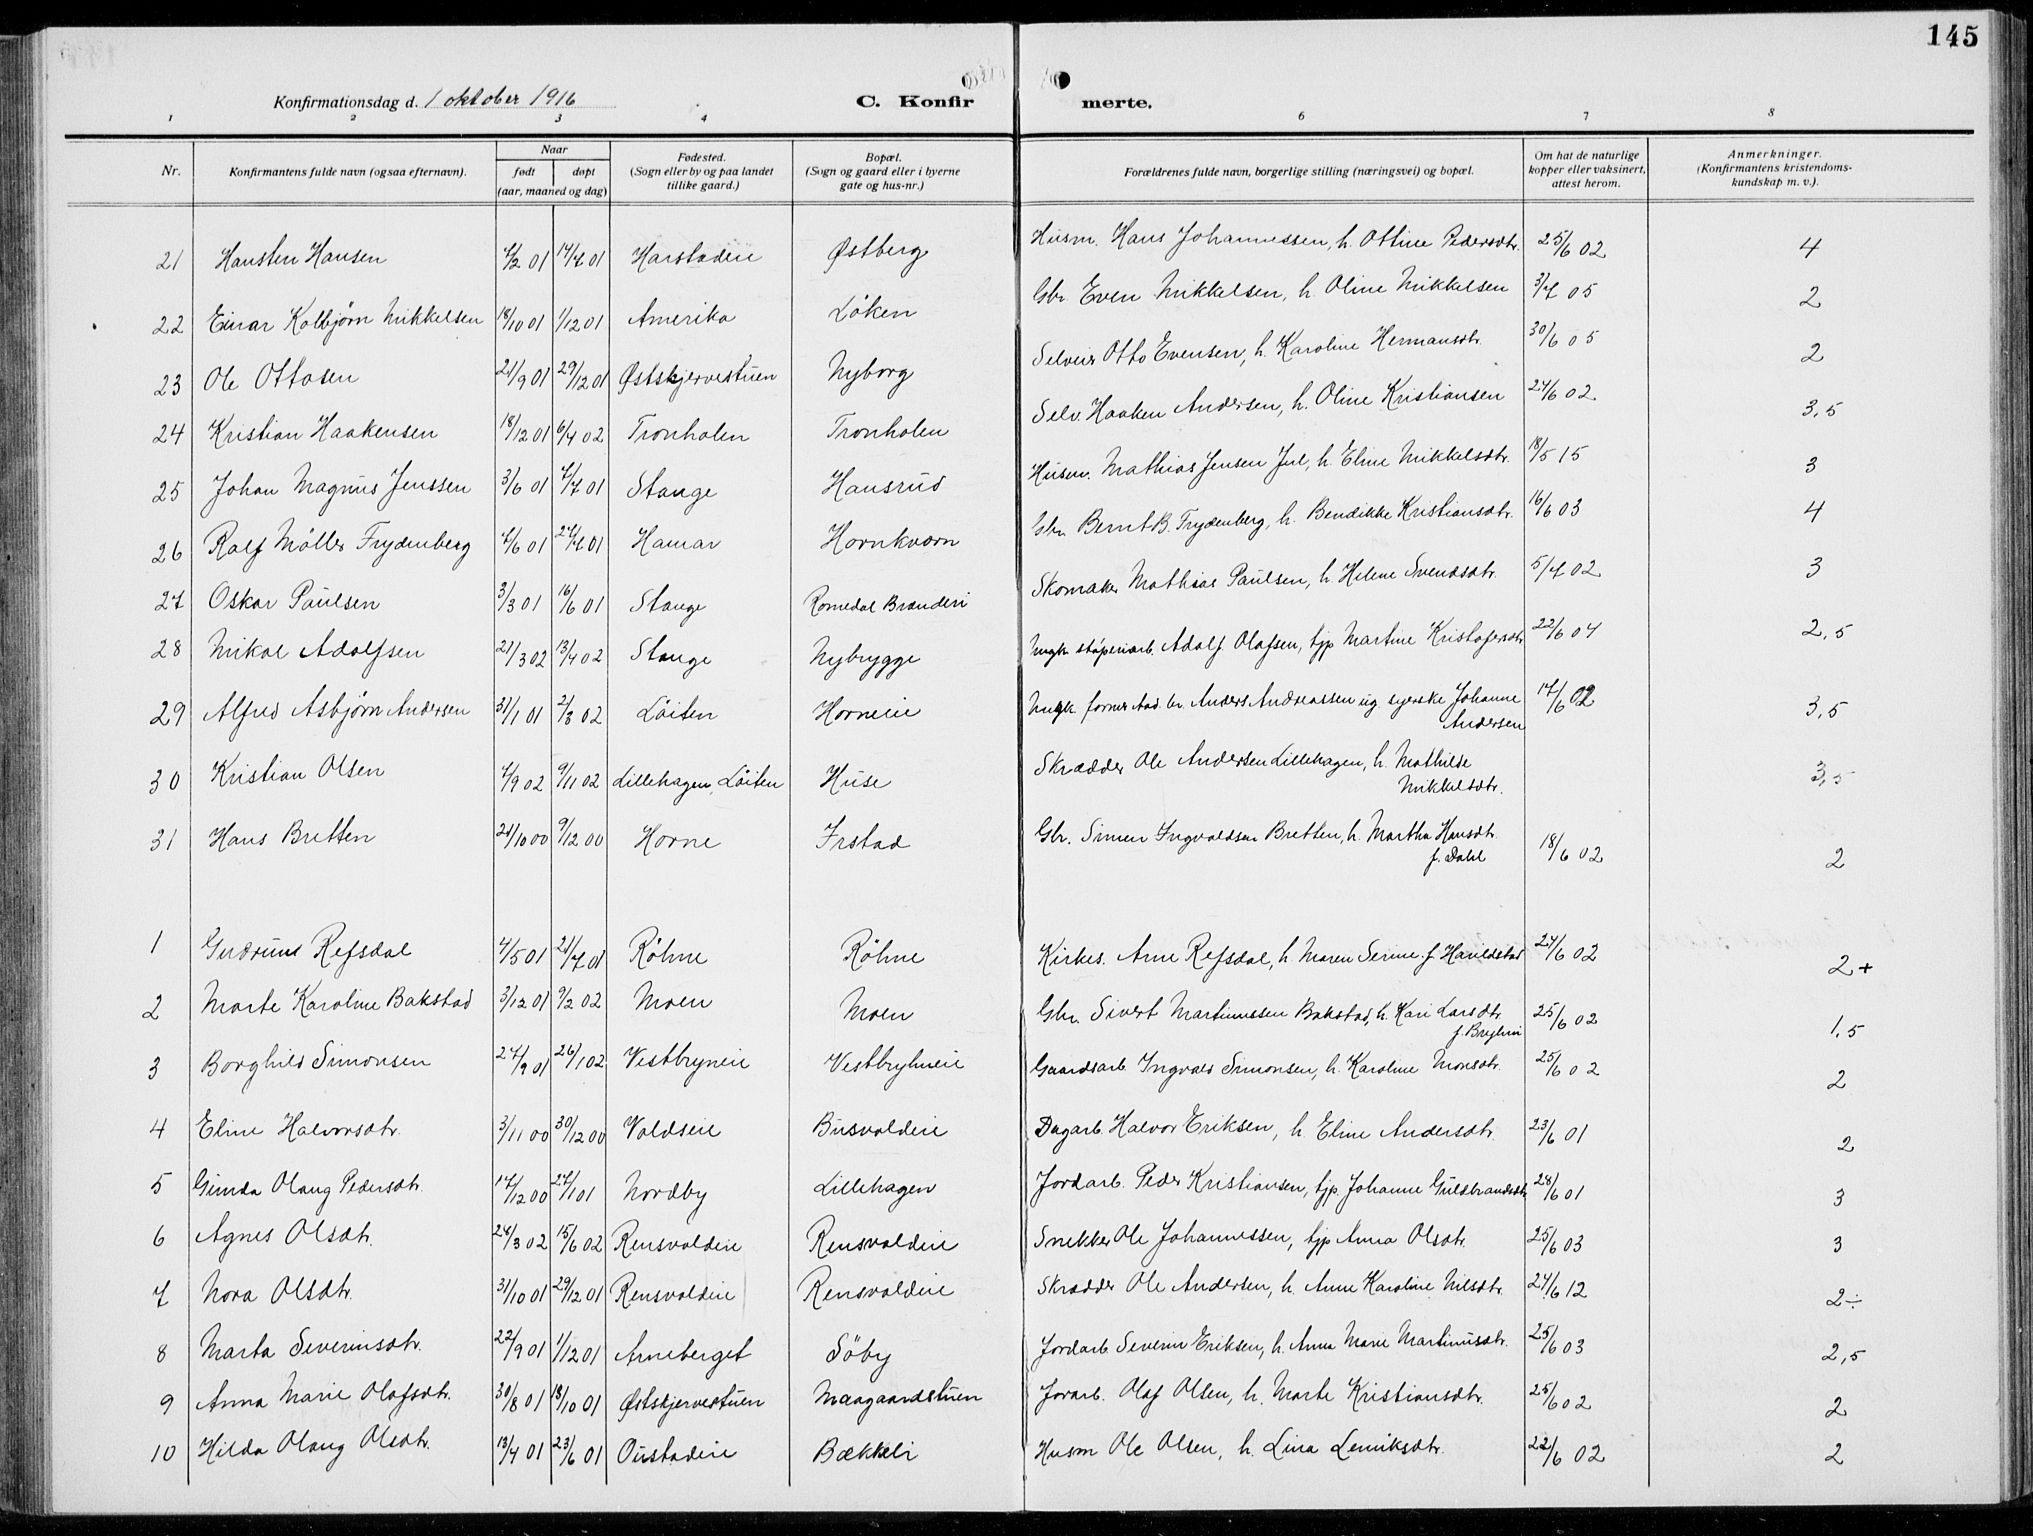 145
Konfirmationsdag d. 1 oktober 1916
C. Konfirmerte.
1 2 3 4 6 7 8
Nr.
Konfirmantens fulde navn (ogsaa efternavn).
Naar
født døpt
(aar, maaned og dag)
Fødested.
(Sogn eller by og paa landet
tillike gaard.)
Bopæl.
(Sogn og gaard eller i byerne
gate og hus-nr.)
Forældrenes fulde navn, borgerlige stilling (næringsvei) og bopæl.
Om hat de naturlige
kopper eller vaksinert,
attest herom.
Anmerkninger.
(Konfirmantens kristendoms-
kundskap m. v.).
21 Hansten Hansen 4/2 01 14/4 01 Harstadeie Østberg Husm. Hans Johannessen, h. Ottine Pedersdtr. 25/6 02 4
22 Einar Kolbjørn Mikkelsen 18/10 01 1/12 01 Amerika Løken Gbr. Even Mikkelsen, h. Oline Mikkelsen 3/7 05 2
23 Ole Ottosen 21/9 01 29/12 01 Østskjervestuen Nyborg Selveier Otto Evensen, h. Karoline Hermansdtr. 30/6 05 2
24 Kristian Haakensen 18/12 01 6/4 02 Tronholen Tronholen Selv. Haaken Andersen, h. Oline Kristiansen 24/6 02 3,5
25 Johan Magnus Jenssen 3/6 01 7/7 01 Stange Hansrud Husm. Mathias Jensen Jul, h. Eline Mikkelsdtr. 18/5 15 3
26 Rolf Møller Frydenberg 4/6 01 Hamar Hornkværn Gbr. Bernt B. Frydenberg, h. Bendikke Kristiansdtr. 16/6 03 4
27 Oskar Paulsen 3/3 01 16/6 01 Stange Romedal Brænderi Skomaker Mathias Paulsen, h. Helene Svendsdtr. 5/7 02 3
28 Mikal Adolfsen 21/3 02 13/4 02 Stange Nybrygge Ungk. støperiarb. Adolf Olafsen, tjp Martine Kristofersdtr. 22/6 04 2,5
29 Alfred Asbjørn Andersen 31/1 01 2/3 02 Løiten Horneie Ungk. Anders Andreassen ug syerske Johanne
Andersen 17/6 02 3,5
30 Kristian Olsen 4/9 02 9/11 02 Lillehagen, Løiten Huse Skrædder Ole Andersen Lillehagen, h. Mathilde
Mikkelsdtr. 3,5
31 Hans Bretten 21/10 00 9/12 00 Horne Frstad Gbr. Simen Ingvaldsen Bretten, h. Martha Hansdtr.
f. Dahl 18/6 02 2
1 Gudrun Refsdal 4/5 01 21/7 01 Røhne Røhne Kirkes. Arne Refsdal, h. Maren Serine f. 24/6 02 2+
2 Marte Karoline Bakstad 3/12 01 9/2 02 Moen Moen Gbr. Sivert Martinussen Bakstad, h. Kari Larsdtr.
25/6 02 1,5
3 Borghild Simonsen 27/9 01 26/1 02 Vestbryneie Vestbryhneie Gaardsarb. Ingvald Simonsen, h. Karoline Monsdtr. 25/6 02 2
4 Eline Halvorsdtr. 3/11 00 30/12 00 Voldseie Busvoldeie Dagarb. Halvor Eriksen, h. Eline Andersdtr. 23/6 01 2
5 Gunda Olaug Pedersdtr. 17/12 00 27/1 01 Nordby Lillehagen Jordarb. Peder Kristiansen, tjp. Johanne Guldbrandsdtr 28/6 01 3
6 Agnes Olsdtr. 24/3 02 15/6 02 Rensvoldeie Rensvoldeie Snekker Ole Johannessen, tjp Anna Olsdtr. 25/6 03 3
7 Nora Olsdtr. 31/10 01 29/12 01 Rensvoldeie Rensvoldeie Skrædder Ole Andersen, h. Anne Karoline Nilsdtr. 24/6 12 2÷
8 Marta Severinsdtr. 22/9 01 1/12 01 Arneberget Søby Jordarb. Severin Eriksen, h. Anna Marie Martinusdtr. 25/6 03 2,5
9 Anna Marie Olafsdtr. 30/8 01 13/10 01 Østskjervestuen Maagaardstuen Jorarb. Olaf Olsen, h. Marte Kristiansdtr. 25/6 02 2
10 Hilda Olaug Olsdtr. 13/4 01 23/6 01 Oustadeie Bækkeli Husm Ole Olsen, h. Lina Lemiksdtr. 22/6 02 2